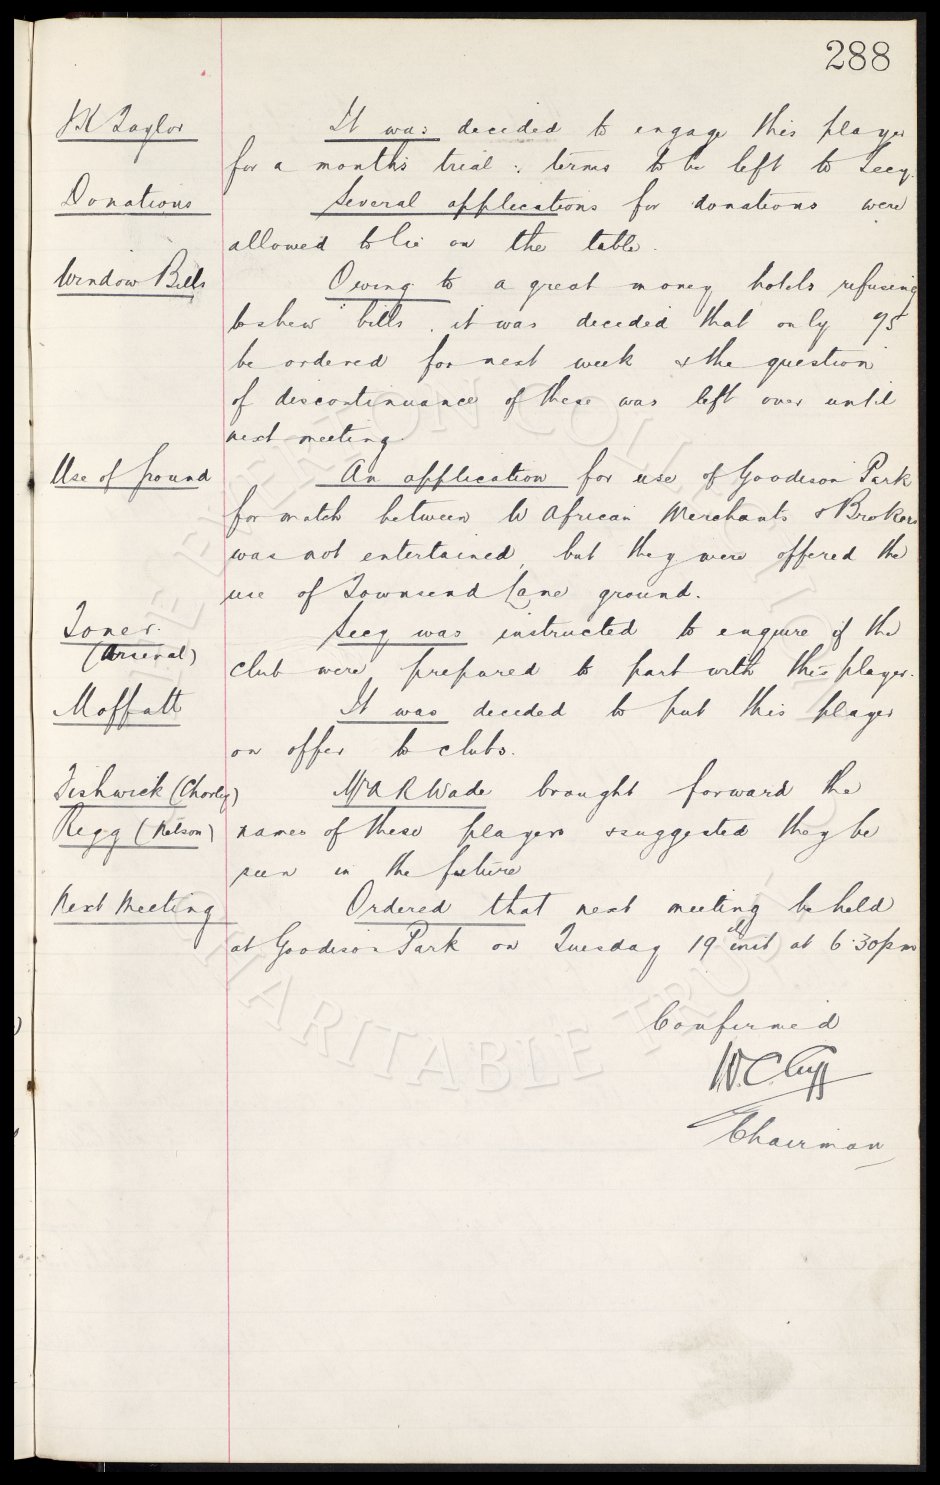 288
J K Taylor It was decided to engage this player
for a month's trial : terms to be left to Secy.
Donations Several applications for donations were
allowed to lie on the table.
Window Bills Owing to a great many hotels refusing
to shew bills, it was decided that only 75
be ordered for next week & the question
of discontinuance of these was left over until
next meeting.
Use of ground An application for use of Goodison Park
for match between W African Merchants & Brokers
was not entertained, but they were offered the
use of Townsend Lane ground.
Toner. Secy was instructed to enquire if the
(Arsenal) club were prepared to part with this player.
Moffatt It was decided to put this player
on offer to clubs.
Fishwick (Chorley) Mr A R Wade brought forward the
Regg (Nelson) names of these players & suggested they be
seen in the future
Next Meeting Ordered that next meeting be held
at Goodison Park on Tuesday 19th inst at 6.30pm
Confirmed
W. C. Cuff
Chairman
THE EVERTON COLLECTION
CHARITABLE TRUST